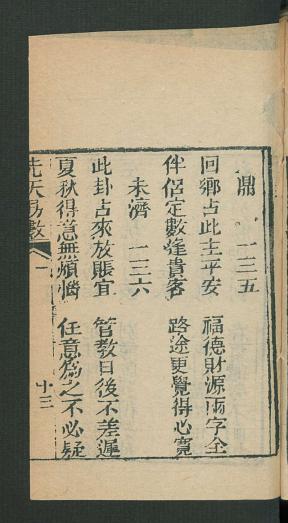 鼎 一三五
回鄉占此主平安 福德財源兩字全
伴侶定數逢貴客 路途更覺得心寬
未濟 一三六
此卦占來放賬宜 管教日後不差遲
夏秋得意無煩惱 任意為之不必疑
先天易數 一 十三